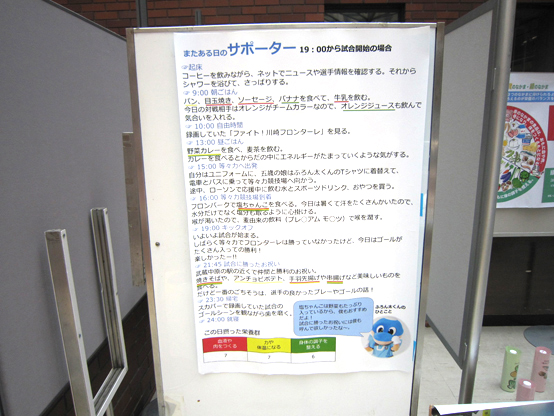 またある日のサポーター 19：00から試合開始の場合
☞起床
コーヒーを飲みながら、ネットでニュースや選手情報を確認する。それから
シャワーを浴びて、さっぱりする。
☞9:00 朝ごはん
パン、目玉焼き、ソーセージ、バナナを食べて、牛乳を飲む。
今日の対戦相手はオレンジがチームカラーなので、オレンジジュースも飲んで
気合いを入れる。
☞10:00 自由時間
録画していた「ファイト！川崎フロンターレ」を見る。
☞13:00 昼ごはん
野菜カレーを食べ、麦茶を飲む。
カレーを食べるとからだの中にエネルギーがたまっていくような気がする。
☞15:00 等々力へ出発
自分はユニフォームに、五歳の娘はふろん太くんのTシャツに着替えて、
電車とバスに乗って等々力競技場へ向かう。
途中、ローソンで応援中に飲む水とスポーツドリンク、おやつを買う。
☞16:00 等々力競技場到着
フロンパークで塩ちゃんこを食べる。今日は暑くて汗をたくさんかいたので、
水分だけでなく塩分も取るように心掛ける。
喉が渇いたので、麦由来の飲料（プレ〇アム モ〇ツ）で喉を潤す。
☞19:00 キックオフ
いよいよ試合が始まる。
しばらく等々力でフロンターレは勝っていなかったけど、今日はゴールが
たくさん入っての勝利！
楽しかった～!!
☞21:45 試合に勝ったお祝い
武蔵中原の駅の近くで仲間と勝利のお祝い。
焼きそばや、アンチョビポテト、手羽先揚げや串揚げなど美味しいものを
食べる。
だけど一番のごちそうは、選手の良かったプレーやゴールの話！
☞23:30 帰宅
スカパーで録画していた試合の
ゴールシーンを観ながら歯を磨く。
☞24:00 就寝
この日摂った栄養群
血液や
肉をつくる
力や
体温になる
身体の調子を
整える
7
7
6
塩ちゃんこは野菜もたっぷり
入っているから、僕もおすすめ
だよ！
試合に勝ったお祝いには僕も
呼んで欲しかったな～。
ふろん太くんの
ひとこと